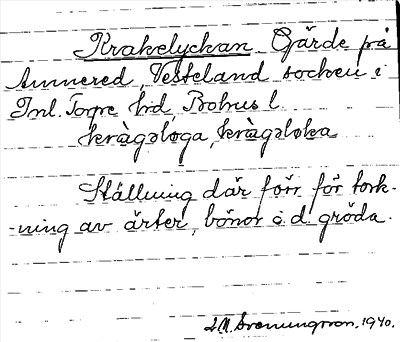 Krakelyckan. Gärde på
Annered, Vesteland socken i
Inl. Torpe hd, Bohus l.
kràgəloga, kràgəloka
Ställning där förr för tork-
-ning av ärter, bönor o. d. gröda.
1940.